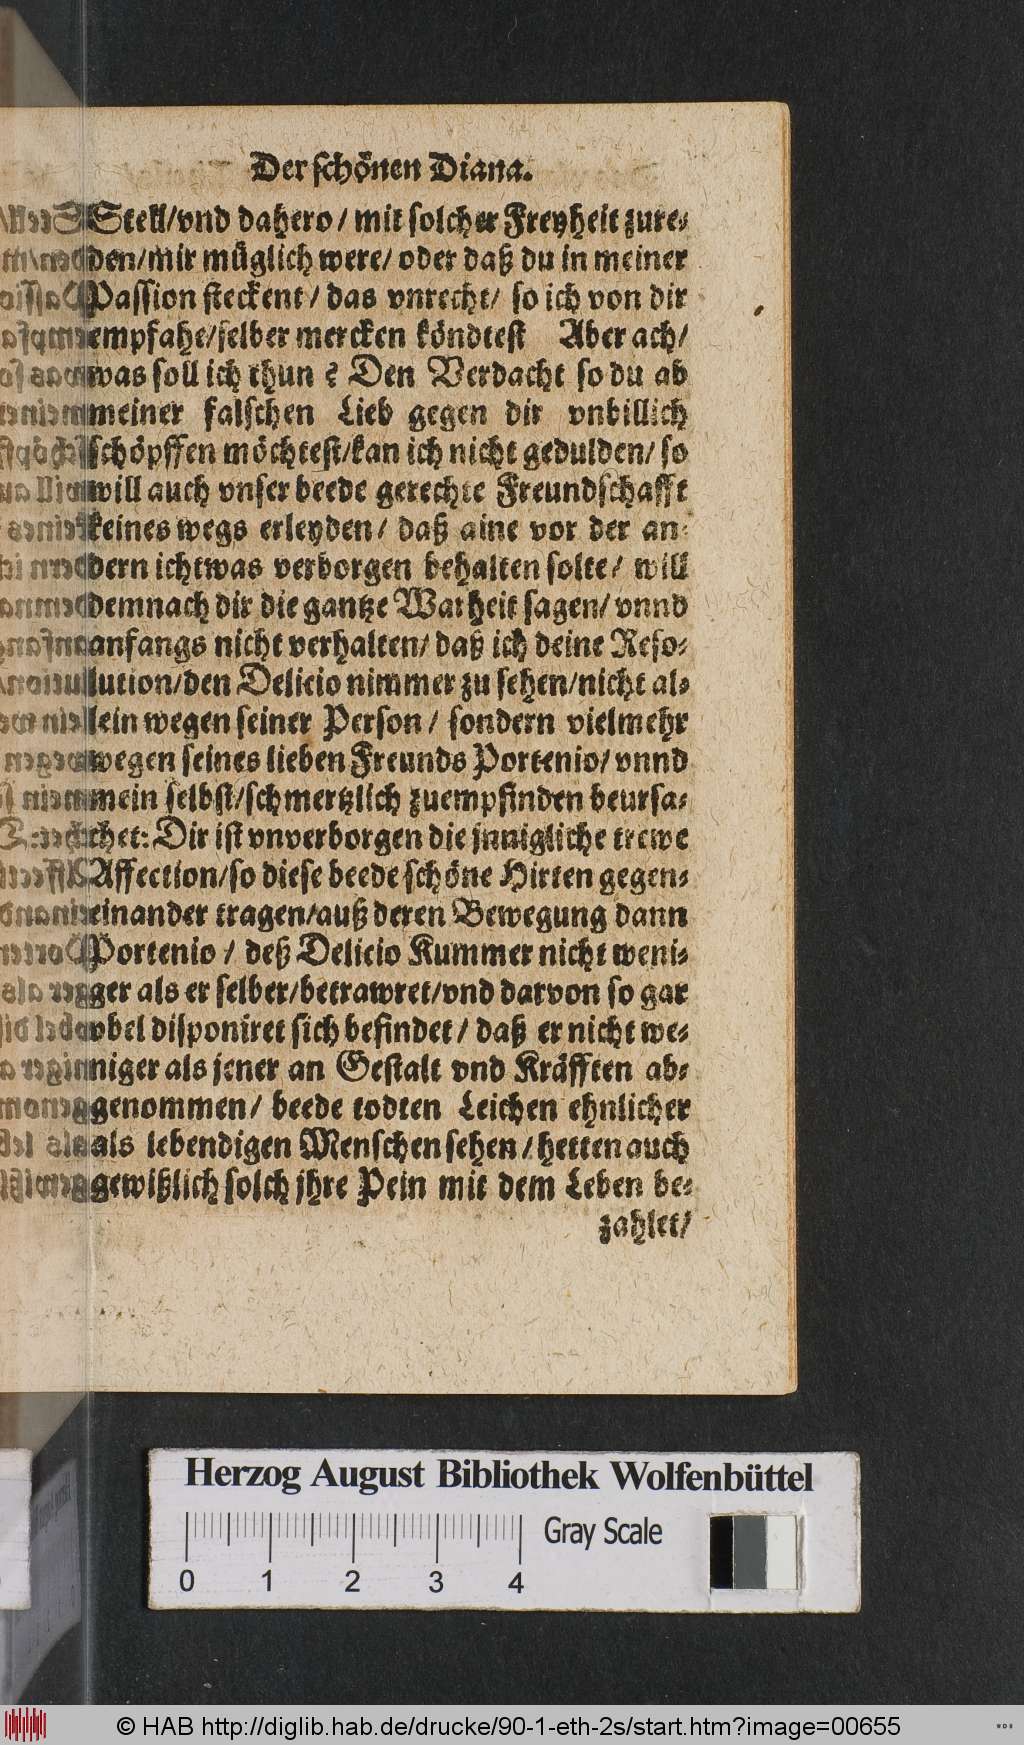 Der schönen Diana.
Stell/vnd dahero/ mit solcher Freyheit zure-
den/mir müglich were/ oder daß du in meiner
Passion steckent/ das vnrecht/ so ich von dir
empfahe/selber mercken köndtest Aber ach/
was soll ich thun? Den Verdacht so du ab
meiner falschen Lieb gegen dir vnbillich
schöpffen möchtest/kan ich nicht gedulden/ so
will auch vnser beede gerechte Freundschafft
keines wegs erleyden/ daß aine vor der an-
dern ichtwas verborgen behalten solte/ will
demnach dir die gantze Warheit sagen/ vnnd
anfangs nicht verhalten/ daß ich deine Reso-
lution/den Delicio nimmer zu sehen/nicht al-
lein wegen seiner Person/ sondern vielmehr
wegen seines lieben Freunds Portenio/ vnnd
mein selbst/schmertzlich zuempfinden beursa-
chet: Dir ist vnverborgen die jnnigliche trewe
Affection/so diese beede schöne Hirten gegen-
einander tragen/auß deren Bewegung dann
Portenio/ deß Delicio Kummer nicht weni-
ger als er selber/betrawret/vnd darvon so gar
vbel disponiret sich befindet/ daß er nicht we-
niger als jener an Gestalt vnd Kräfften ab-
genommen/ beede todten Leichen ehnlicher
als lebendigen Menschen sehen/hetten auch
gewißlich solch jhre Pein mit dem Leben be-
zahlet/
Herzog August Bibliothek Wolfenbüttel
Gray Scale
0 1 2 3 4
© HAB http://diglib.hab.de/drucke/90-1-eth-2s/start.htm?image=00655